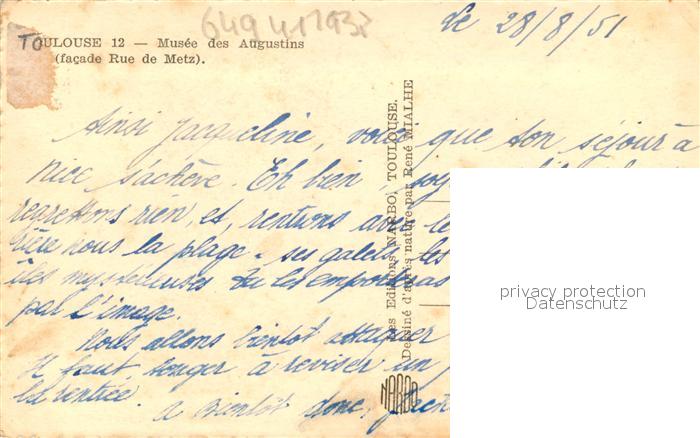 649411938
le 28/8/51
TOULOUSE 12 — Musée des Augustins
(façade Rue de Metz).
Ainsi Jacqueline, voici que ton séjour à
nice s'achève. Eh bien,
regrettons rien, et, rentrons avec le
nous la plage - ses galets, les
îles mystérieuses tu les emporteras
par l'image.
Nous allons bientôt attaquer
Il faut songer à reviser un
la rentrée.
a bientôt donc,
Les Editions NARBO, TOULOUSE.
Dessiné d'après nature par René MIALHE
NARBO
privacy protection
Datenschutz